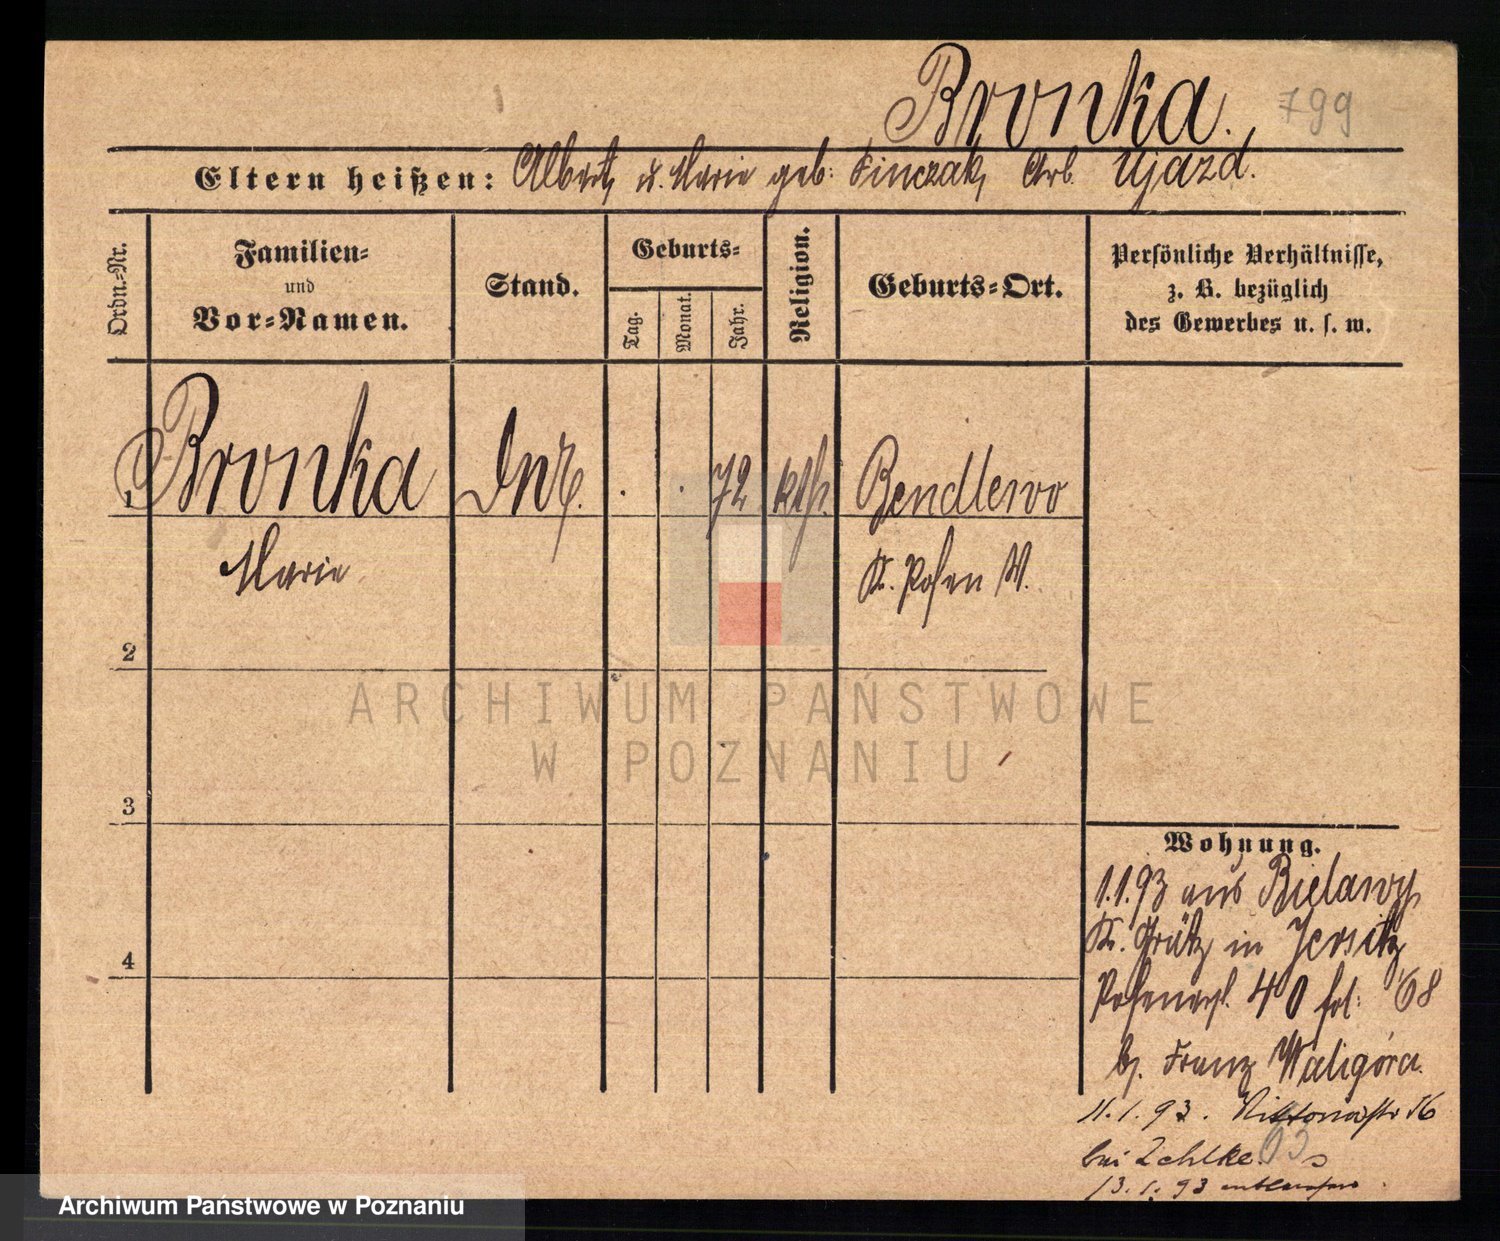 Bronka. 799
Eltern heißen: Albert u. Marie geb: Finczak, Arb. Ujazd.
Ordn.-Nr.
Familien- und Vor-Namen.
Stand.
Geburts-
Tag. Monat. Jahr.
Religion.
Geburts-Ort.
Persönliche Verhältnisse,
z. B. bezüglich
des Gewerbes u. s. w.
1 Bronka . . 72 kth. Bendlewo
Marie Kr. Posen W.
2
3
4
Wohnung.
1.1.93 aus Bielawy,
Kr. Grätz in Jersitz
Posenerst. 40 fol: 68
b. Franz Waligóra.
11.1.93. Viktoriastr 16
bei Zehlke. 93
13.1.93 entlassen
ARCHIWUM PAŃSTWOWE
W POZNANIU
Archiwum Państwowe w Poznaniu